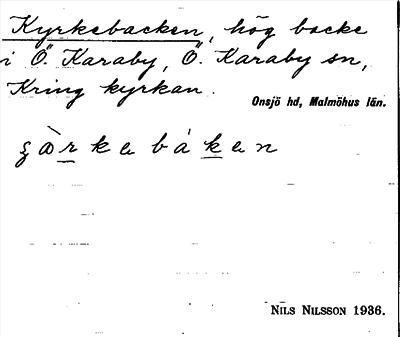 Kyrkebacken, hög backe
i Ö. Karaby, Ö. Karaby sn,
Kring kyrkan.
Onsjö hd, Malmöhus län.
NILS NILSSON 1936.